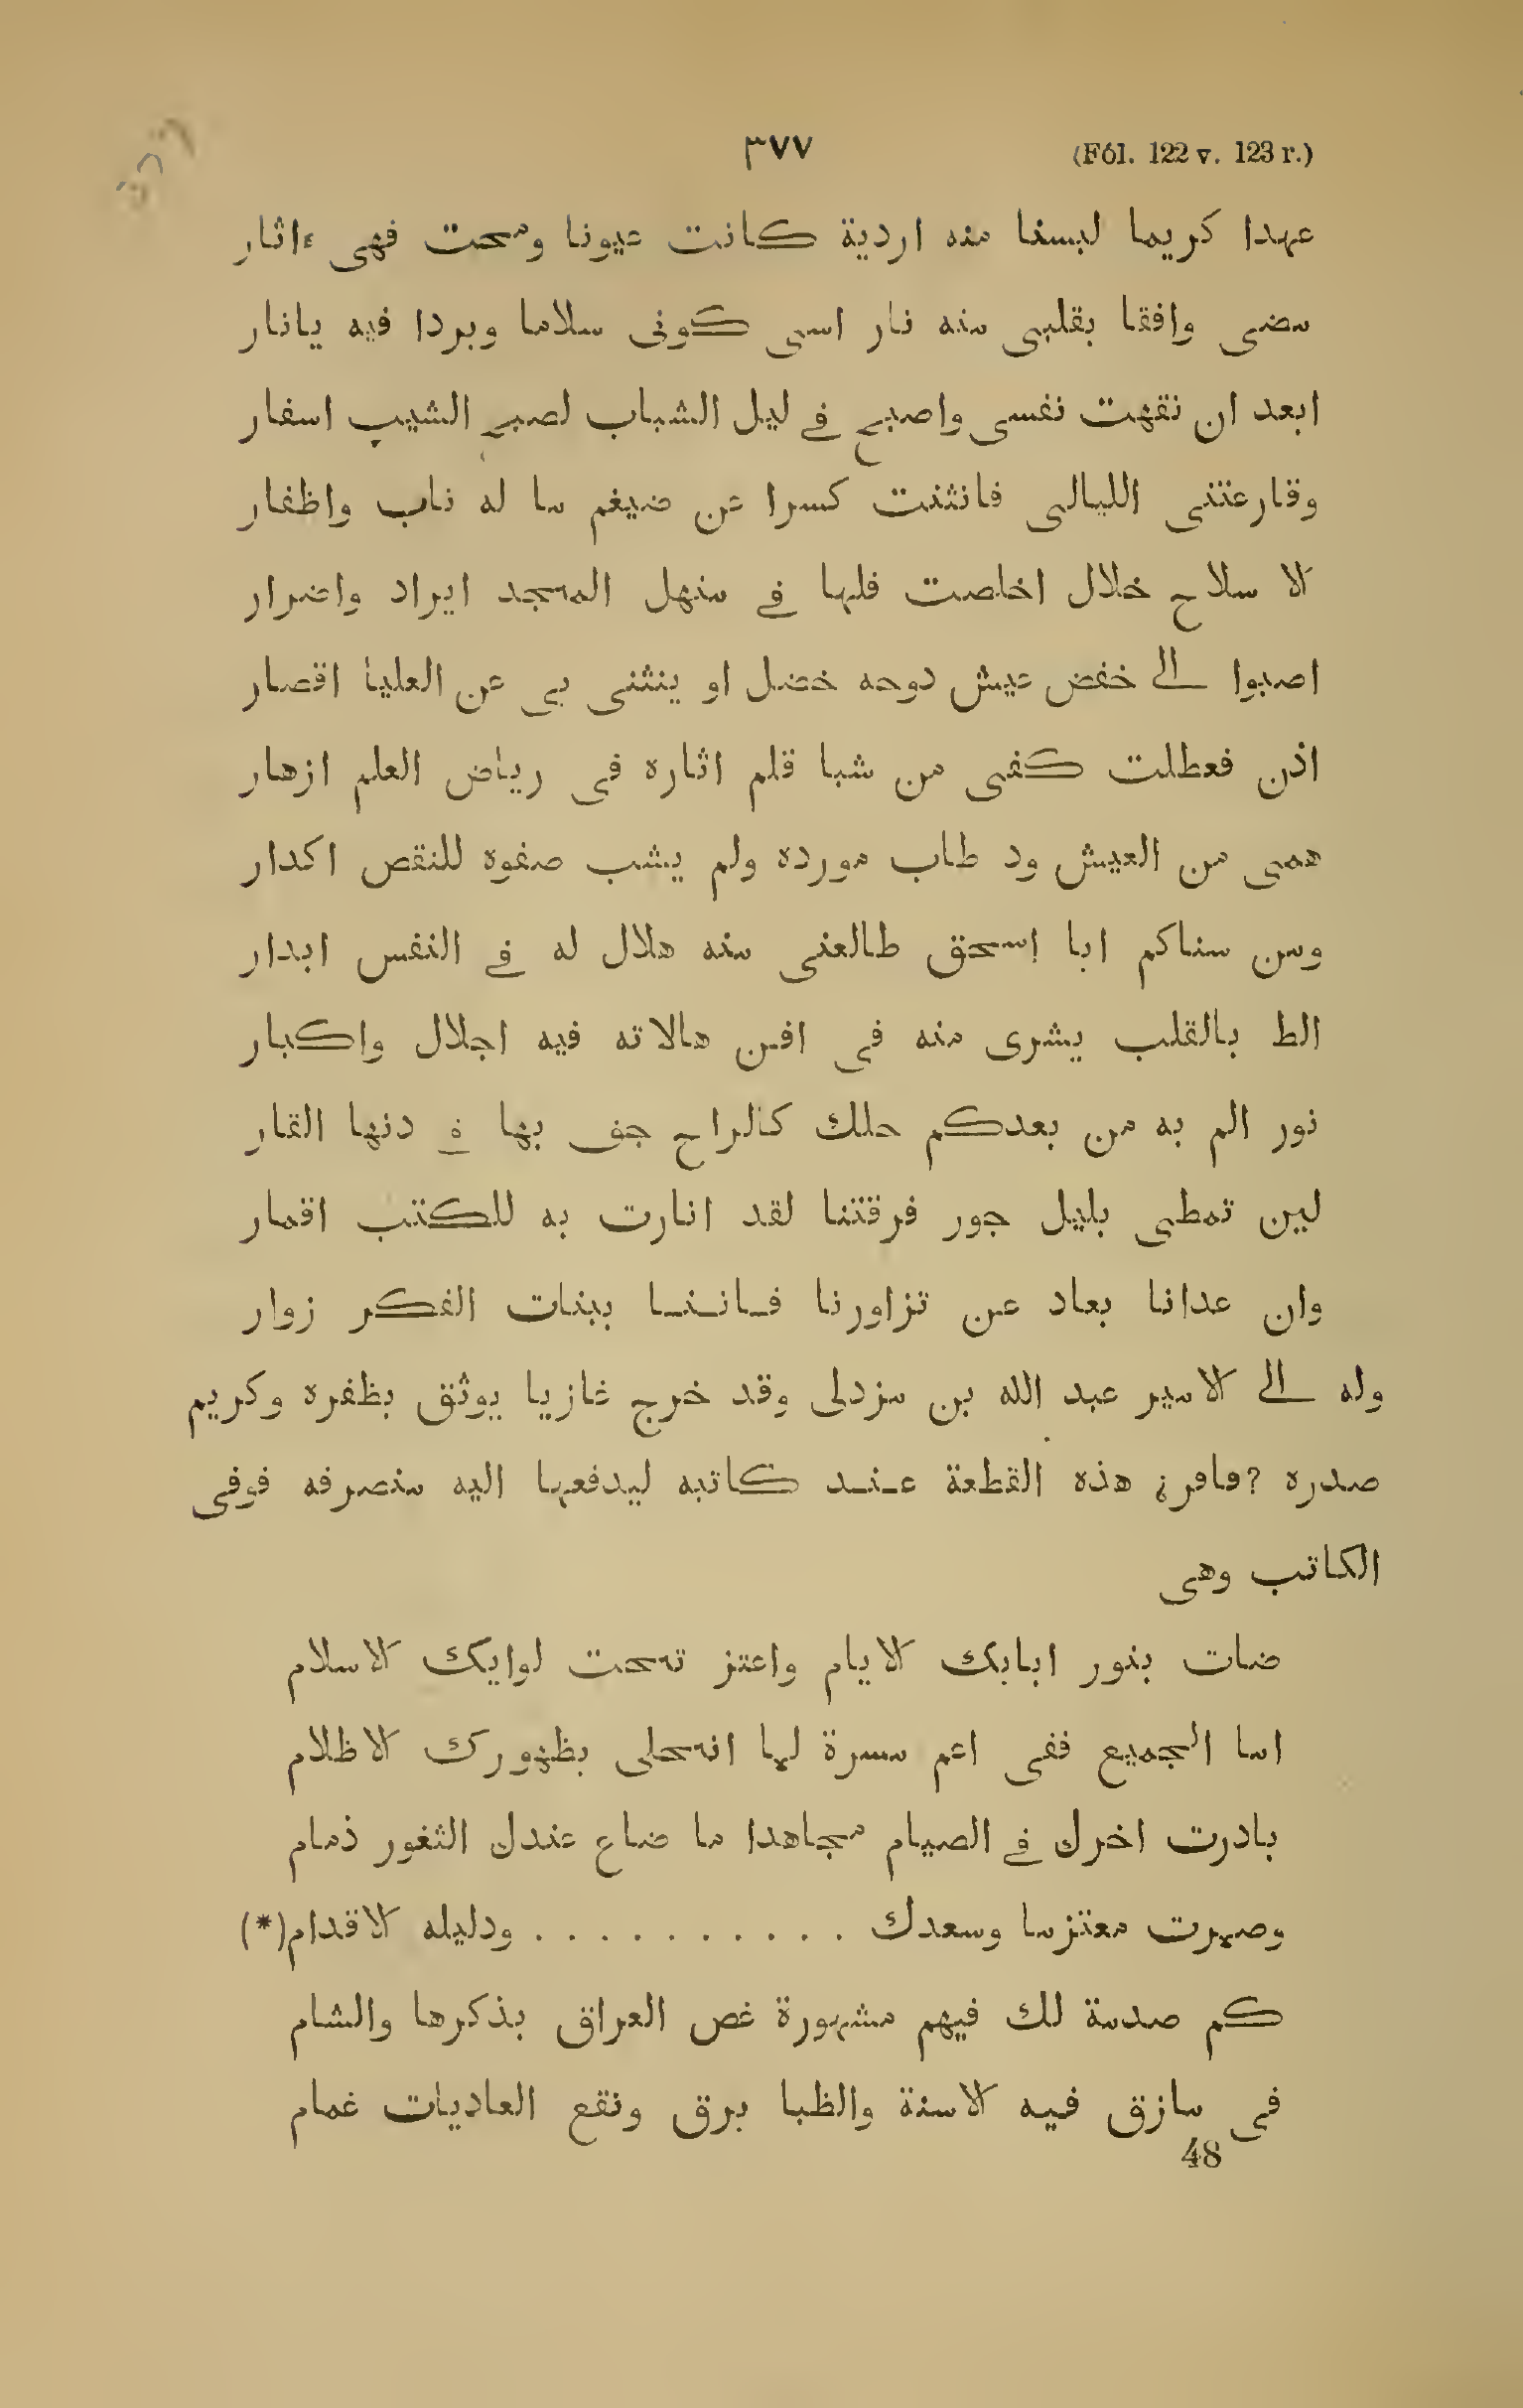 (Fól. 122 v. 123 r.) ٣٧٧
عهدا كريما لبسنا منه اردية كانت عيونا ومحت فهى ءاثار
مضى وافقا بقلبى منه نار اسى كونى سلاما وبردا فيه يانار
ابعد ان نقهت نفسى واصبح فى ليل الشباب لصبح الشيب اسفار
وقارعتنى الليالى فانثنت كسرا عن ضيغم ما له ناب واظفار
الا سلاح خلال اخلصت فلها فى منهل المجد ايراد واضرار
اصبوا الى خفض عيش دوحه خضل او ينثنى بى عن العليا اقصار
اذن فعطلت كفى من شبا قلم اثاره فى رياض العلم ازهار
همى من العيش ود طاب مورده ولم يشب صفوه للنقص اكدار
ومن سناكم ابا إسحق طالعنى منه هلال له فى النفس ابدار
الط بالقلب يشرى منه فى افن هالاته فيه اجلال واكبار
نور الم به من بعدكم حلك كالراح جف بها فى دنها القار
لين تمطى بليل جور فرقتنا لقد انارت به للكتب اقمار
وان عدانا بعاد عن تزاورنا فاننا ببنات الفكر زوار
وله الى الامير عبد الله بن مزدلى وقد خرج غازيا يوثق بظفره وكريم
صدره ? هذه القطعة عند كاتبه ليدفعها اليه منصرفه فوفى
الكاتب وهى
ضات بنور ايابك الايام واعتز تحت لوايك الاسلام
اما الجميع ففى اعم مسرة لما انجلى بظهورك الاظلام
بادرت اخرك فى الصيام مجاهدا ما ضاع عندك الثغور ذمام
وصمرت معتزما وسعدك . . . . . . . . . . ودليله الاقدام(*)
كم صدمة لك فيهم مشهورة غص العراق بذكرها والشام
فى مازق فيه الاسنة والظبا برق ونقع العاديات غمام
48